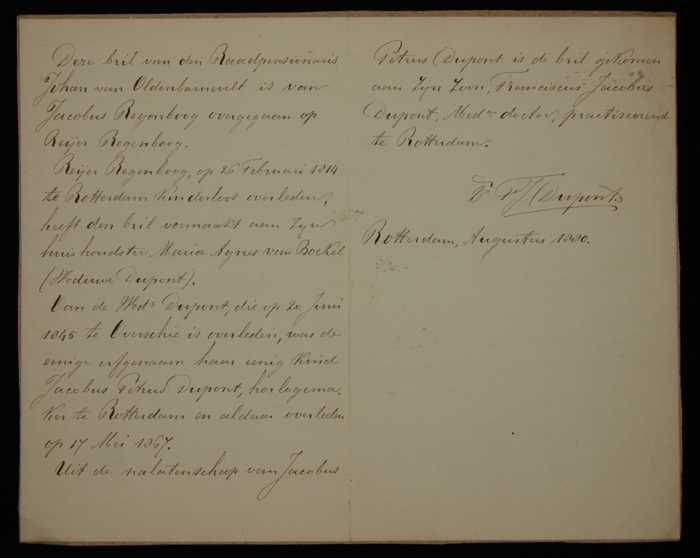 Deze bril van den Raadpensionaris
Johan van Oldenbarnevelt is van
Jacobus Regenboog overgegaan op
Reijer Regenboog.
Reijer Regenboog, op 26 Februari 1814
te Rotterdam kinderloos overleden,
heeft den bril vermaakt aan zijn
huishoudster Maria Agnes van Boekel
(Weduwe Dupont).
Van de Wede Dupont, die op 20 Juni
1846 te Overschie is overleden, was de
eenige erfgenaam haar eenig kind
Jacobus Petrus Dupont, horlogema-
ker te Rotterdam en aldaar overleden
op 17 Mei 1867.
Uit de nalatenschap van Jacobus
Petrus Dupont is de bril gekomen
aan zijn zoon, Franciscus Jacobus
Dupont, Med. doctor, practiseerend
te Rotterdam.
Dupont
Rotterdam, Augustus 1880.